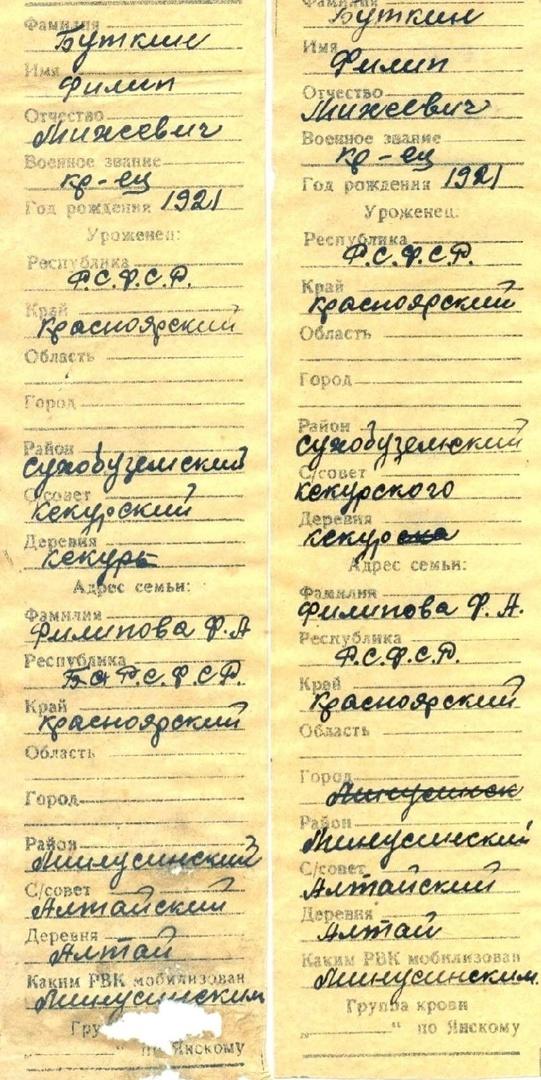 Фамилия
Буткин
Имя
Филип
Отчество
Михеевич
Военное звание
кр-ец
Год рождения 1921
Уроженец:
Республика
Р.С.Ф.С.Р.
Край
Красноярский
Область
Город
Район
Сухобузимский
С/совет
Кекурский
Деревня
Кекурь
Адрес семьи:
Фамилия
Филипова Ф.А
Республика
Р.С.Ф.С.Р.
Край
Красноярский
Область
Город
Район
Минусинский
С/совет
Алтайский
Деревня
Алтай
Каким РВК мобилизован
Минусинским
Гру
" по Янскому
Фамилия
Буткин
Имя
Филип
Отчество
Михеевич
Военное звание
кр-ец
Год рождения 1921
Уроженец:
Республика
Р.С.Ф.С.Р.
Край
Красноярский
Область
Город
Район
Сухобузимский
С/совет
Кекурского
Деревня
Адрес семьи:
Фамилия
Филипова Ф.А.
Республика
Р.С.Ф.С.Р.
Край
Красноярский
Область
Город
Минусинск
Район
Минусинский
С/совет
Алтайский
Деревня
Алтай
Каким РВК мобилизован
Минусинским.
Группа крови
" по Янскому